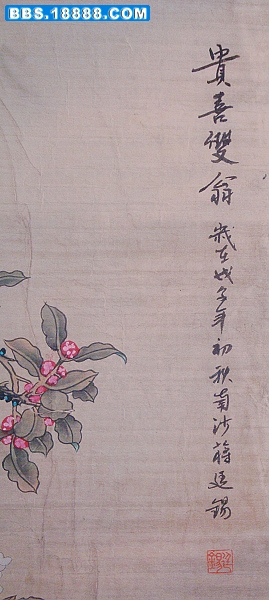 BBS.18888.COM
貴喜雙翁 歲在戊子年初秋南沙蔣廷錫